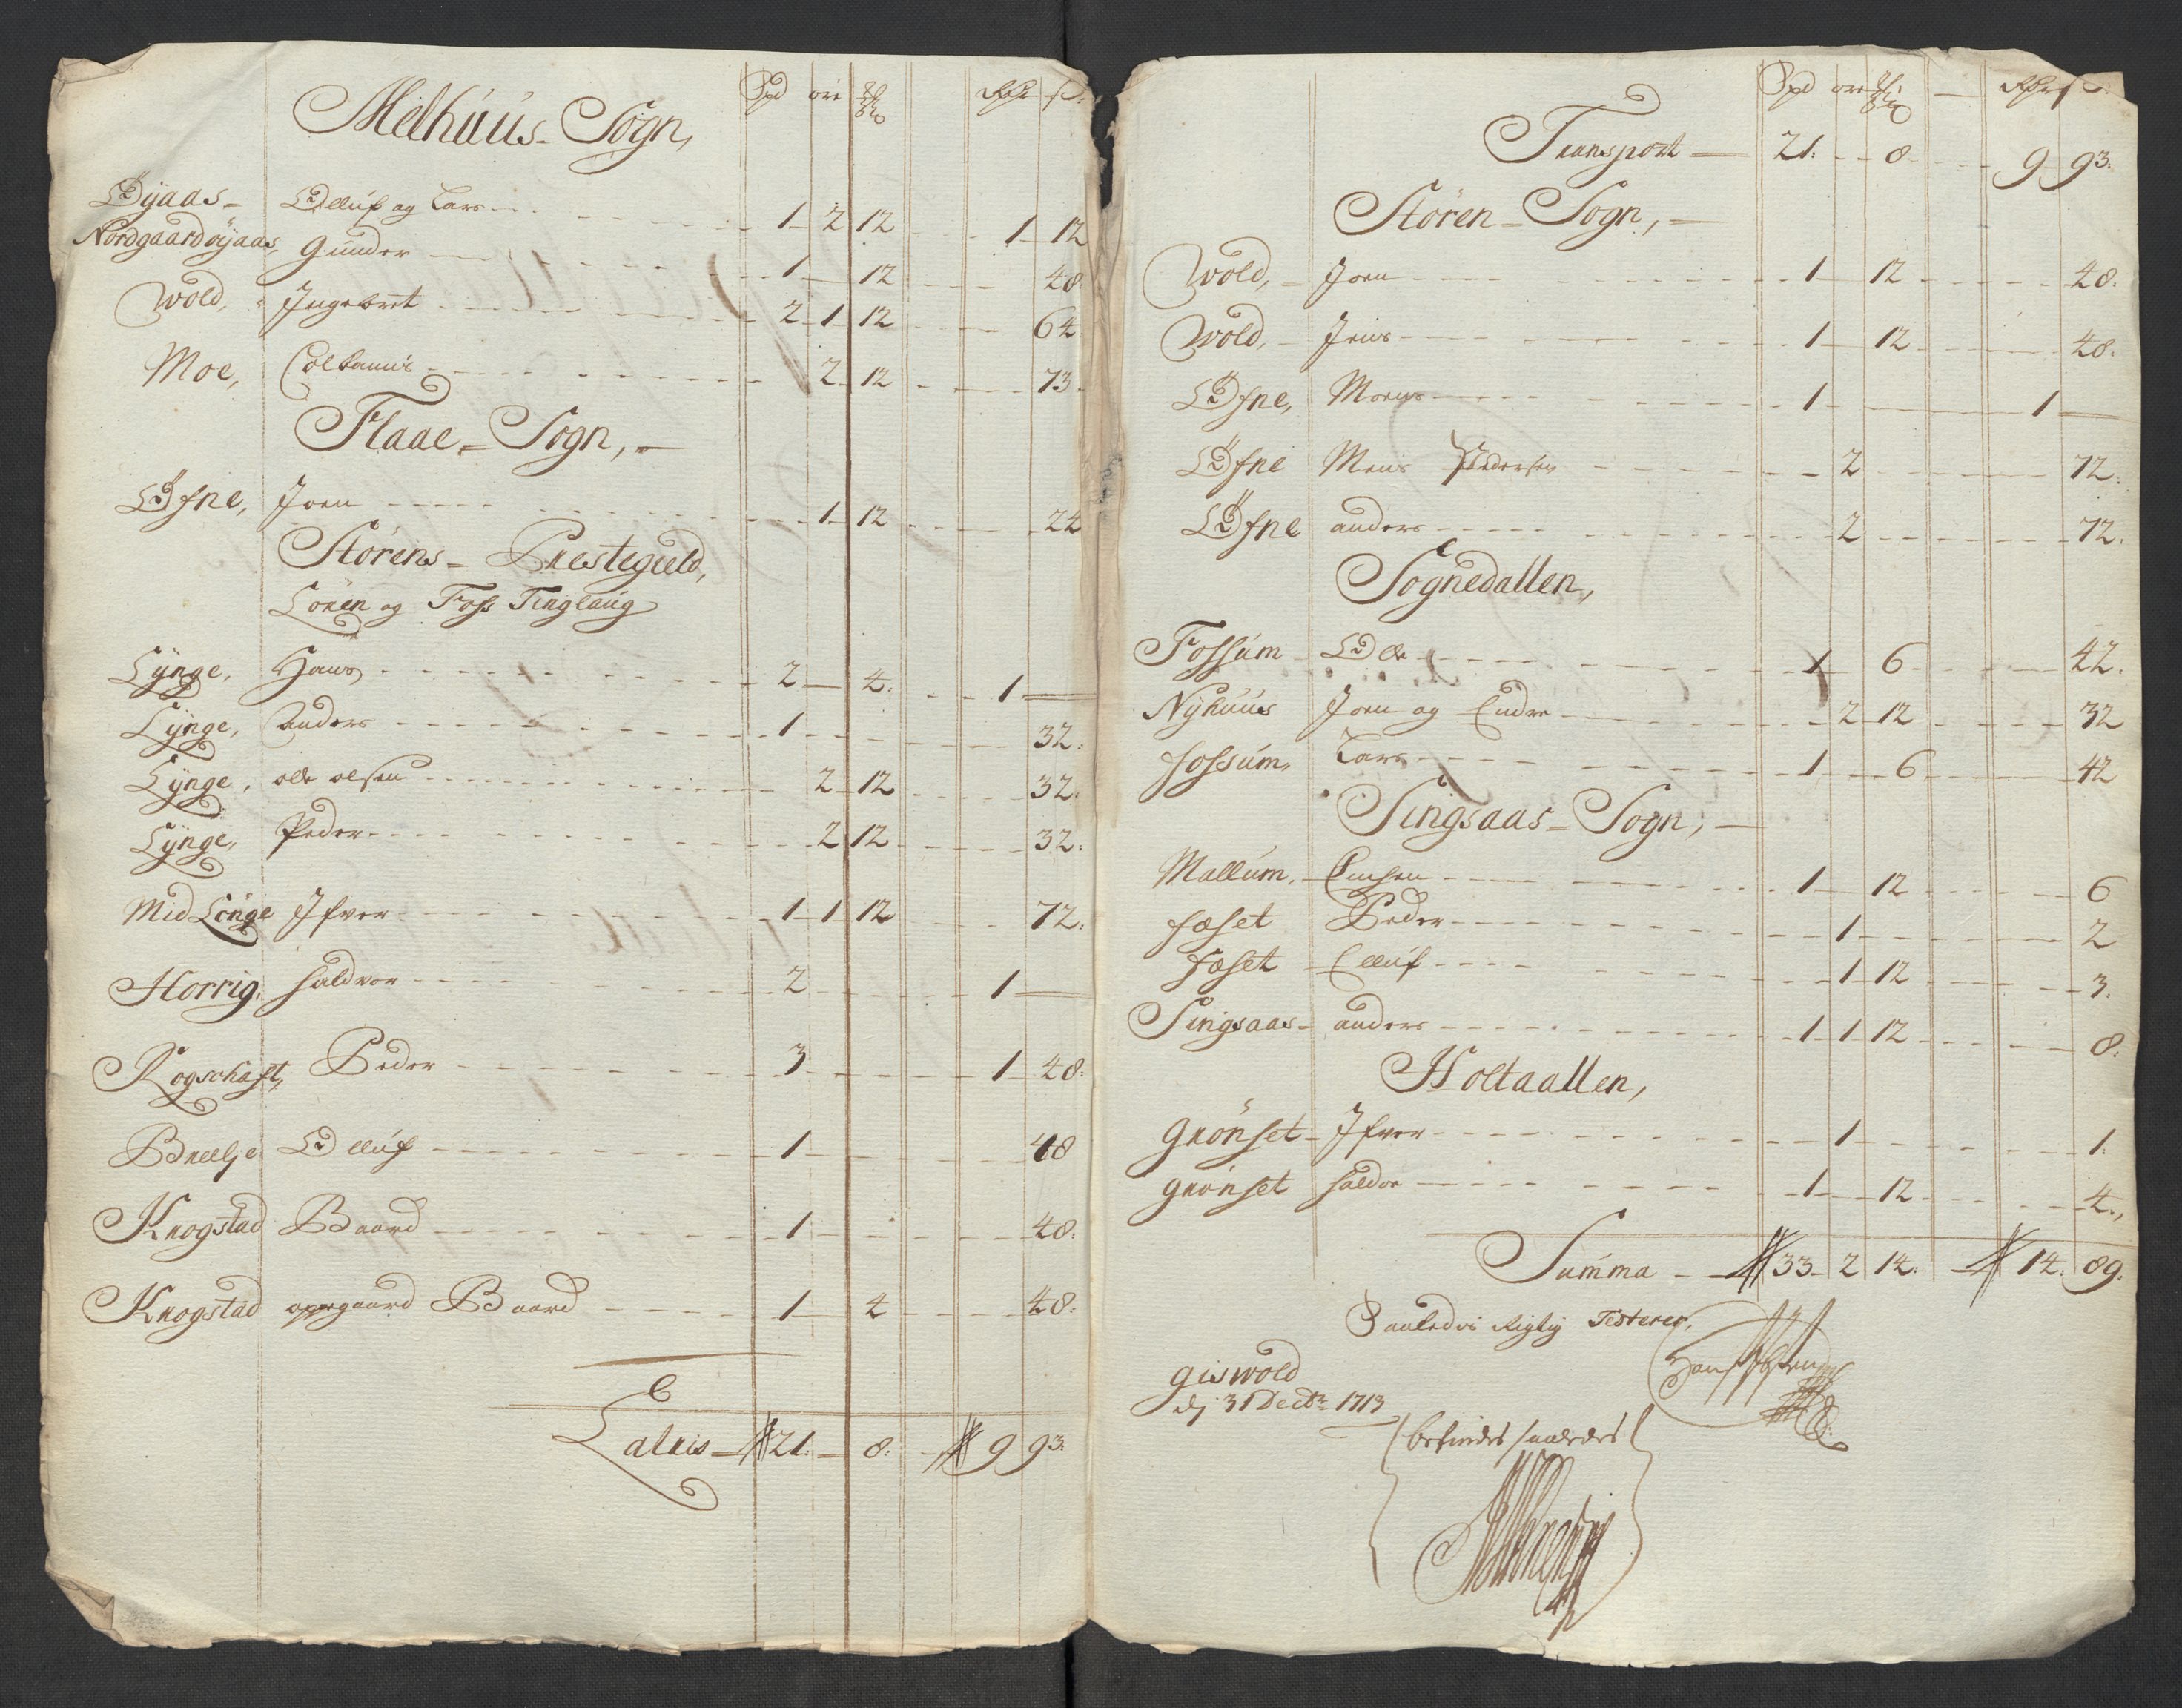 Spd ore Rdr s:
Melhuus Sogn,
Öÿaas Olluf og Lars 1 2 12 1 12
Nordgaardöÿaas, Gunder 1 12 48.
Wold, Ingebret 2 1 12 64
Moe, 2 12 73
Flaae Sogn,
Öfne, Joen 1 12 24
Störens Prestegield,
Lönen og Foss Tinglaug
Lÿnge, Hans 2 4. 1
Lÿnge, Anders 1 32.
Lÿnge, ole olsen 2 12 32.
Lÿnge, Peder 2 12 32.
Mid Lönge Ifver 1 1 12 72.
Horrig. Haldvor 2 1
Rogschaft, Peder 3 1 48.
Bnellje Olluf 1 48
Krogstad Baard 1 48.
Krogstad opegaard Baard 1 4 48.
Lateris 21. 8. 9 93.
Spd ore Rdr s
Transport 21. 8 9 93.
Stören Sogn,
Wold, Joen 1 12 48.
Wold, Jens 1 12 48.
Öfne, Mons 1 1
Öfne Mons Pedersen 2 72.
Öfne anders 2 72.
Sognedallen,
Fossum Ole 1 6 42.
Nÿhuus Joen og Endre 2 12 32
fossum, Lars 1 6 42
Singsaas Sogn,
Mallum, 1 12 6
fæset Peder 1 2
Fæset Elluf 1 12 3.
Singsaas anders 1 1 12 8.
Holtaallen,
Grönset Ifver 1 1.
grönset Haldor 1 12 4.
Summa 33 2 14. 14. 89.
Saaledis Rigtig Testerer,
giswold
dj 31 Decbr 1713
befindes saaledes